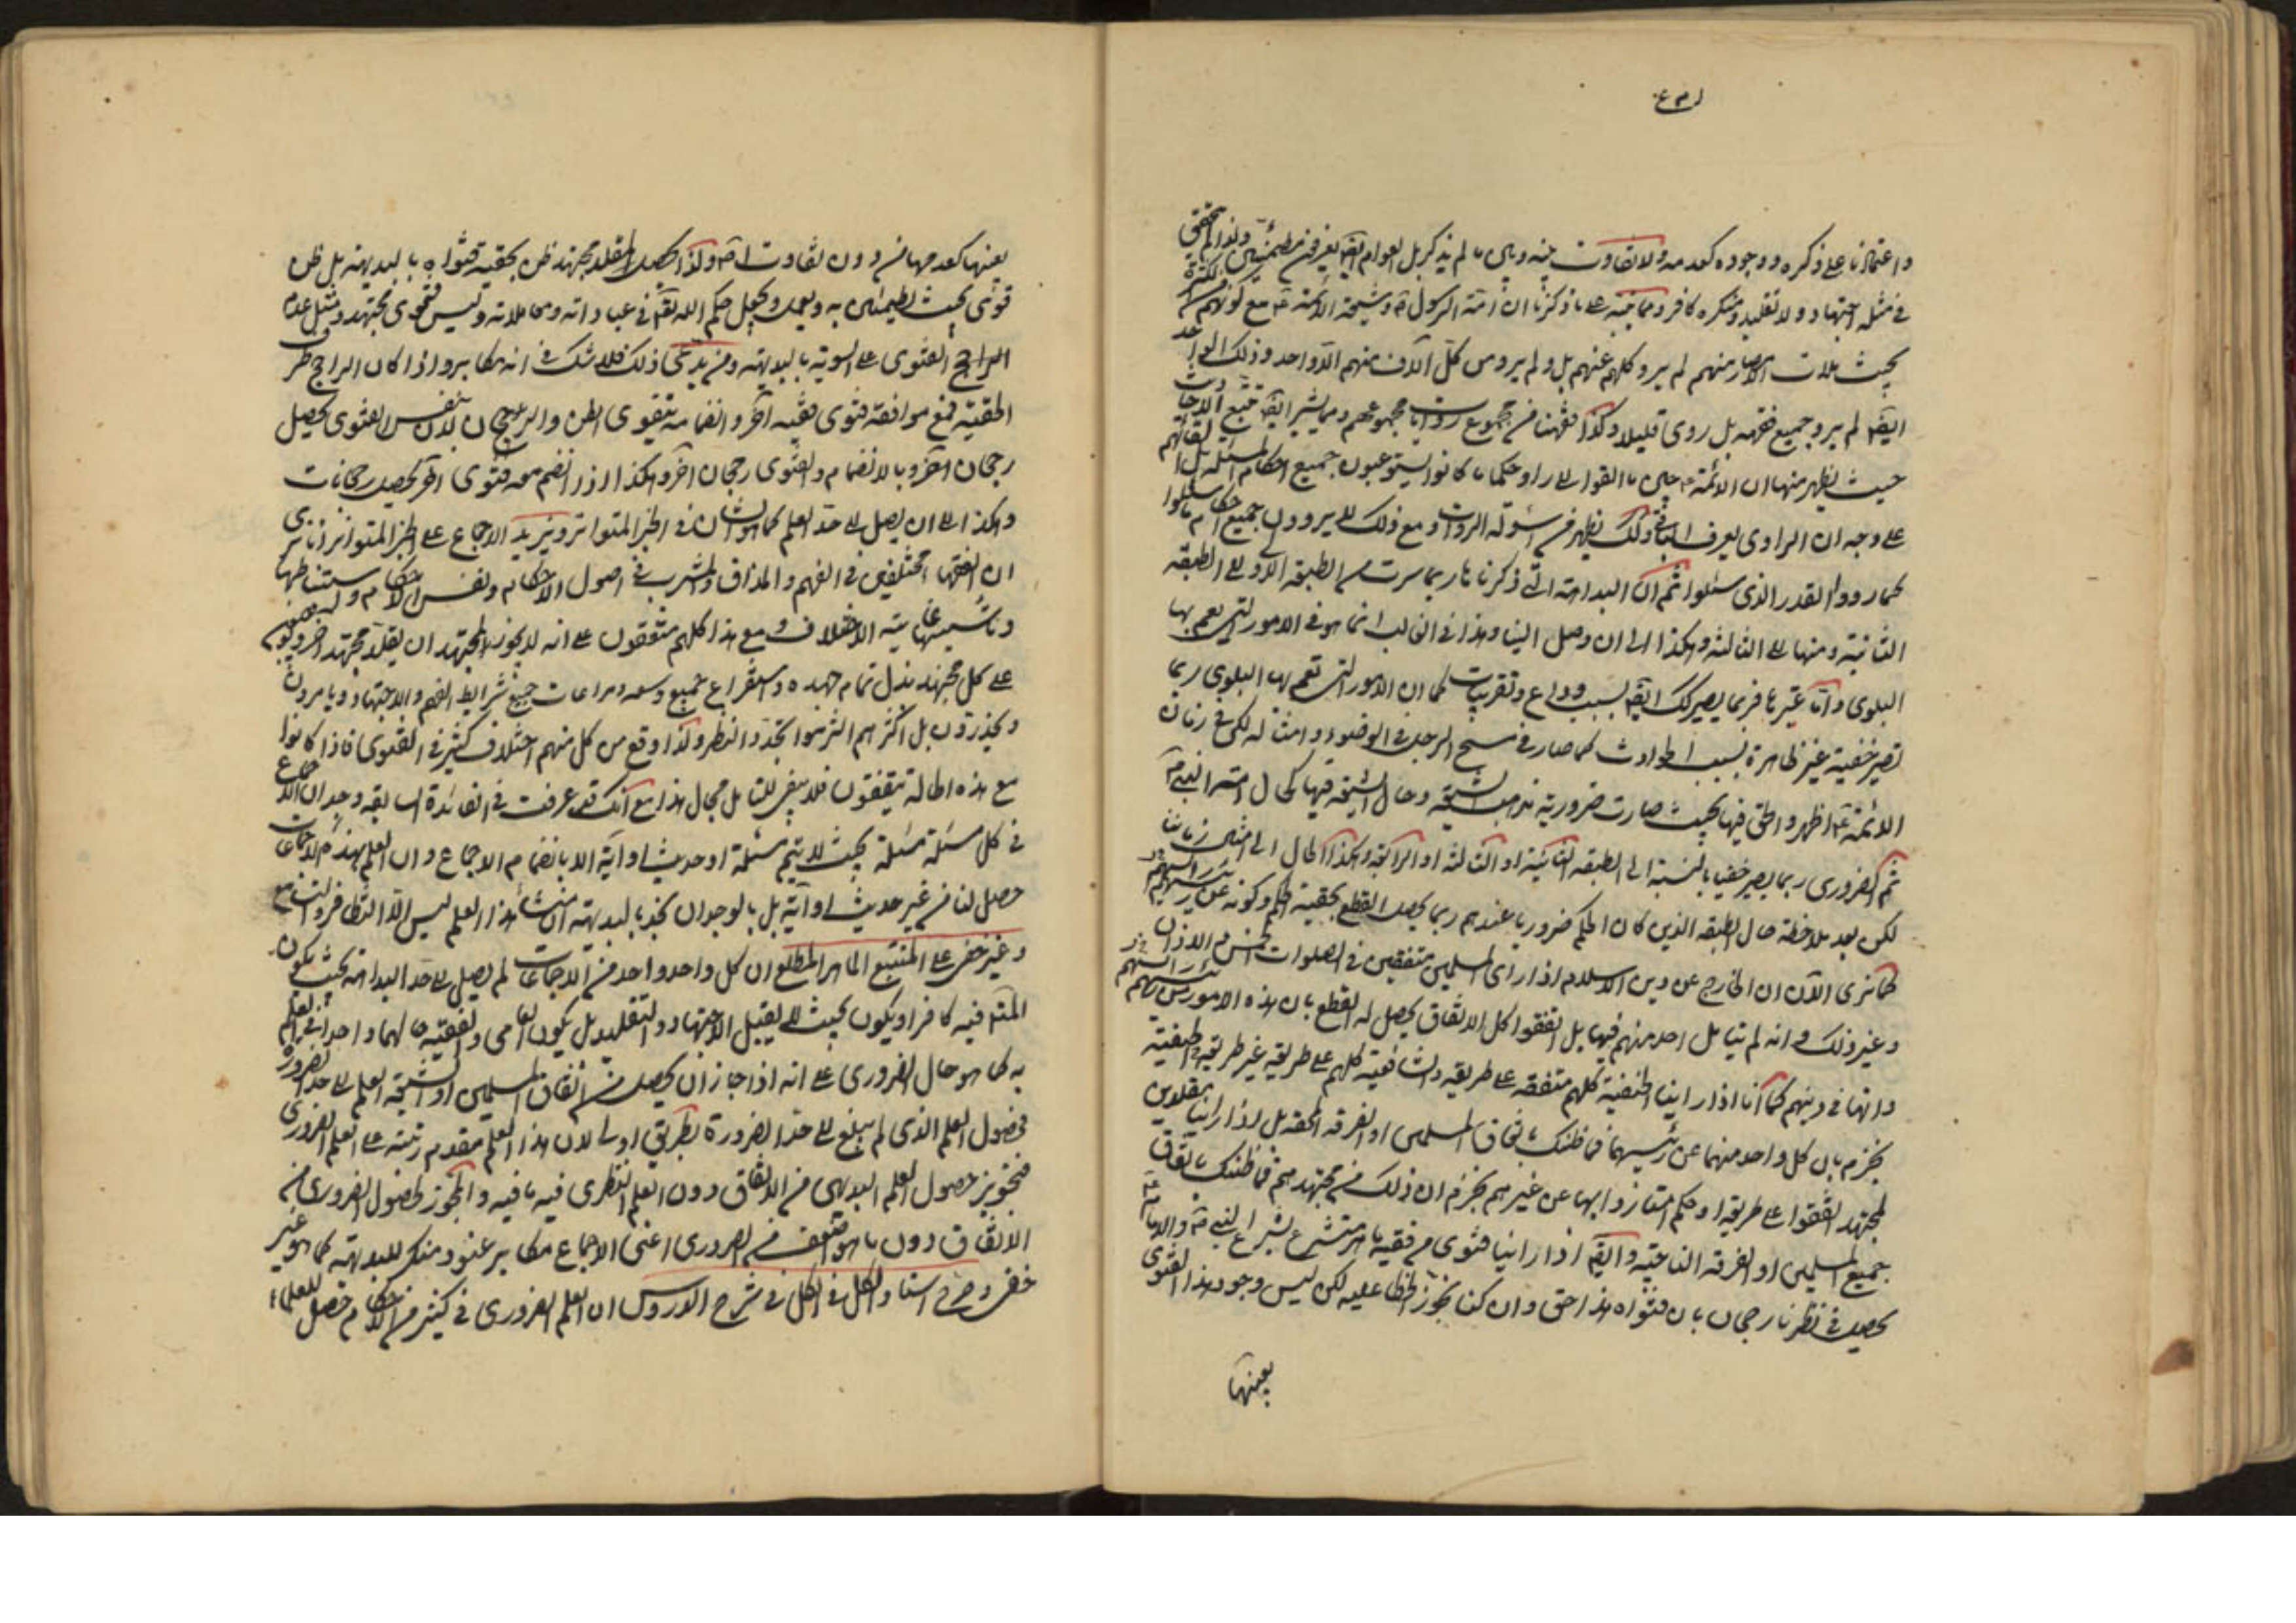 واعتمادنا على ذكره ووجوده كعدمه ولا تفاوت بينه وبين ما لم يذكر بل العوام ايضا يعرفون مطمئنين ولذا لم يتحقق
في مثله اجتهاد ولا تقليد ومنكره كافر ومما ينبه على ما ذكرنا ان امة الرسول ص وشيعة الائمة ع مع كونهم من الكثرة
بحيث ملات الامصار منهم لم يرو كلهم عنهم بل ولم يرو من كل آلاف منهم الا واحد وذلك الواحد
ايضا لم يرو جميع فقهه بل روى قليلا وكذا فقهنا من مجموع روايات مجموعهم ومما يشير ايضا تتبع الروايات
حيث يظهر منها ان الائمة ع حين ما القوا الى راو حكما ما كانوا يستوعبون جميع احكام المسئلة بل القائهم
على وجه ان الراوي يعرف الباقي وكذلك يظهر من اسؤلة الرواة ومع ذلك لم يروون جميع احكام ما سئلوا
كما رووا القدر الذي سئلوا ثم ان البداهة التي ذكرناها ربما سرت من الطبقة الاولى الى الطبقة
الثانية ومنها الى الثالثة وهكذا الى ان وصل الينا وهذا في الغالب انما هو في الامور التي يعم بها
البلوى واما غيرها فربما يصير كك ايضا بسبب دواع وتقريبات كما ان الامور التي تعم بها البلوى ربما
تصير خفية غير ظاهرة بسبب الحوادث كما صار في مسح الرجل في الوضوء وامثاله لكن في زمان
الائمة ع اظهروا الحق فيها بحيث صارت ضرورية مذهب الشيعة وحال الشيعة فيها كحال امة النبي ص
ثم الضروري ربما يصير خفيا بالنسبة الى الطبقة الثانية او الثالثة او الرابعة وهكذا الحال الى امثال زماننا
لكن بعد ملاحظة حال الطبقة الذين كان الحكم ضروريا عندهم ربما يحصل القطع بحقية الحكم وكونه عن رئيسهم
كما نرى الآن ان الخارج عن دين الاسلام اذا رأى المسلمين متفقين في الصلوات الخمس والاذان
وغير ذلك وانه لم يتامل احد منهم فيها بل اتفقوا كل الاتفاق يحصل له القطع بان هذه الامور من رئيسهم
وانها في دينهم كما أنا اذا راينا الحنفية كلهم متفقة على طريقة والشافعية كلهم على طريقة غير طريقة الحنفية
نجزم بان كل واحد منهما عن رئيسهما فما ظنك باتفاق المسلمين او الفرقة المحقة بل اذا راينا مقلدين
لمجتهد اتفقوا على طريقة او حكم امتازوا بها عن غيرهم نجزم ان ذلك من مجتهدهم فما ظنك باتفاق
جميع المسلمين او الفرقة الناجية وايضا اذا راينا فتوى من فقيه ماهر متشرع بشرع النبي ص والائمة ع
يحصل في نظرنا رجحان بان فتواه هذا حق وان كنا نجوز الخطا عليه لكن ليس وجود هذا الفتوى
بعينها
بعينها كعدمها من دون تفاوت اصلا ولذا يحصل لمقلد مجتهد ظن بحقية فتواه بالبديهة بل ظن
قوي بحيث يطمئن به ويعمل ويجعل حكم الله تعالى في عباداته ومعاملاته وليس فتوى مجتهد ومثل عدم
الفتوى على السوية بالبديهة ومن يدعي ذلك فلا شك في انه مكابر واذا كان الراجح في نظر
الحقية فمع موافقة فتوى فقيه آخر وانضمامه يتقوى الظن والرجحان لان نفس الفتوى يحصل
رجحان آخر وبالانضمام والفتوى رجحان آخر وهكذا اذا انضم معه فتوى آخر يحصل رجحانات
وهكذا الى ان يصل الى حد العلم كما هو الشأن في الخبر المتواتر ويزيد الاجماع على الخبر المتواتر بان نرى
ان الفقهاء مختلفين في الفهم والمذاق والمشرب في اصول الاحكام ونفس الاحكام واستنباطها
وتاسيسها غاية الاختلاف ومع هذا كلهم متفقون على انه لا يجوز لمجتهد ان يقلد مجتهدا آخر ويوجبون
على كل مجتهد بذل تمام جهده واستفراغ جميع وسعه ومراعات جميع شرايط الفهم والاجتهاد ويامرون
ويحذرون بل اكثرهم التزموا تجدد النظر ولذا وقع من كل منهم اختلاف كثير في الفتوى فاذا كانوا
مع هذه الحالة يتفقون فلا يبقى للتامل مجال هذا مع انك قد عرفت في الفائدة السابقة وجدان الاجماع
في كل مسئلة مسئلة بحيث لا يتم مسئلة او حديث او آية الا بانضمام الاجماع وان العلم بهذه الاجماعات
حصل لنا من غير حديث او آية بل بالوجدان نجد بالبديهة ان منشأ هذا العلم ليس الا التظافر والتسامع
وغير خفي على المتتبع الماهر المطلع ان كل واحد واحد من الاجماعات لم يصل الى حد البداهة بحيث يكون
المتامل فيه كافرا ويكون بحيث لا يقبل الاجتهاد والتقليد بل يكون العامي والفقيه حالهما واحدا في العلم
به كما هو حال الضروري على انه اذا جاز ان يحصل من اتفاق المسلمين او الشيعة العلم الى حد الضرورة
فحصول العلم الذي لم يبلغ الى حد الضرورة بطريق اولى لان هذا العلم مقدم رتبته على العلم الضروري
فتجويز حصول العلم البديهي من الاتفاق دون العلم النظري فيه ما فيه والمجوز لحصول الضروري من
الاتفاق دون ما هو اضعف من الضروري اعني الاجماع مكابر عنود منكر للبديهة كما هو غير
خفي وصرح استاد الكل في الكل في شرح الدروس ان العلم الضروري في كثير من الاحكام حصل للعلماء